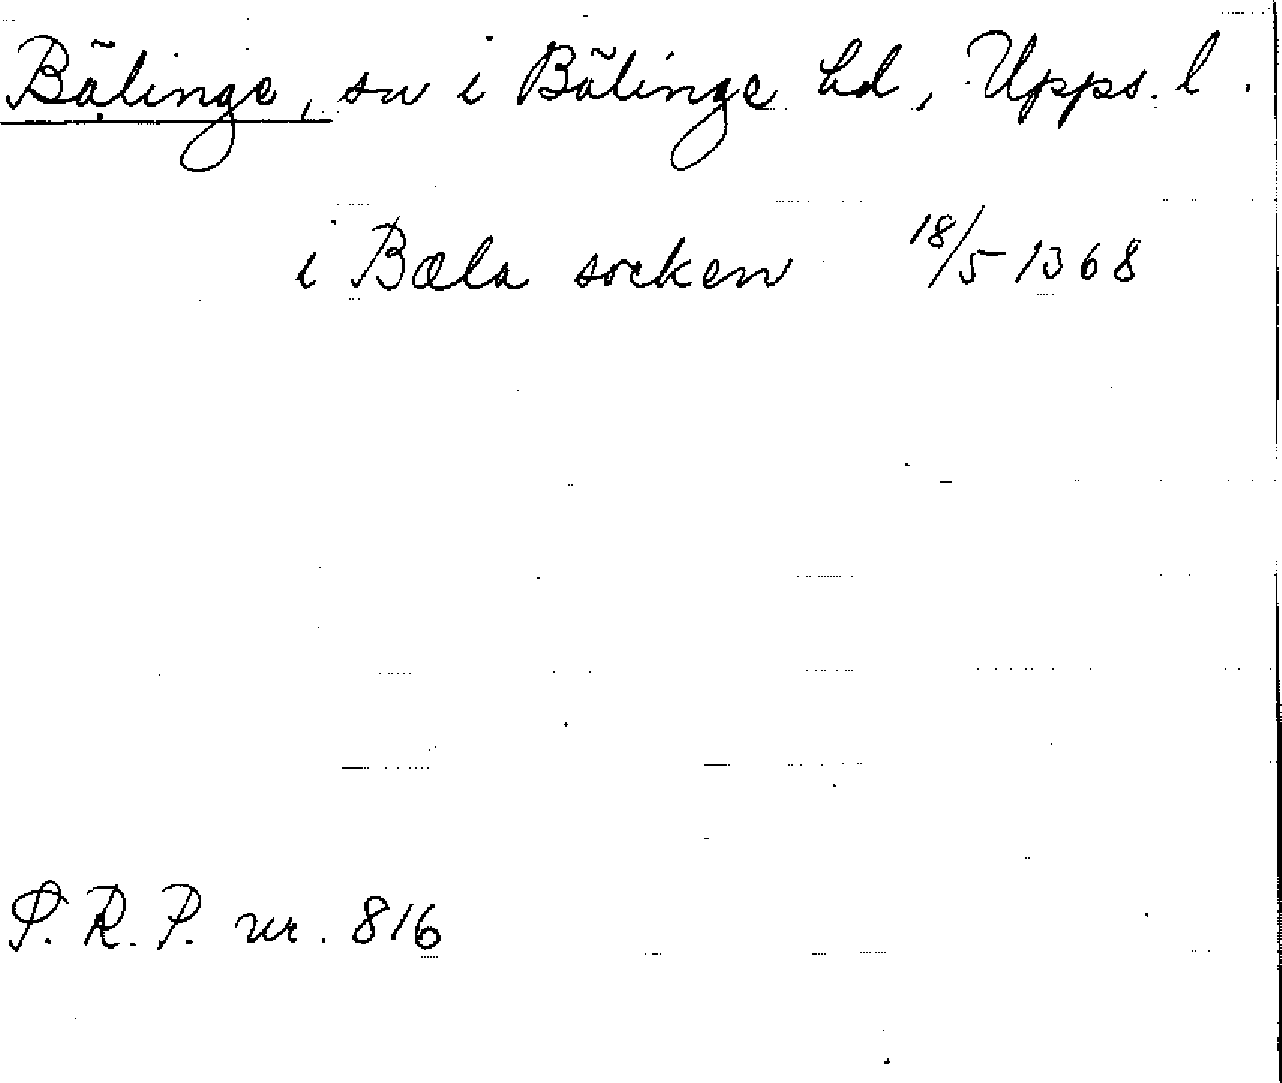 Bälinge, sn i Bälinge hd, Upps. l.
i Bæla socken 18/5 1368
S. R. P. nr. 816